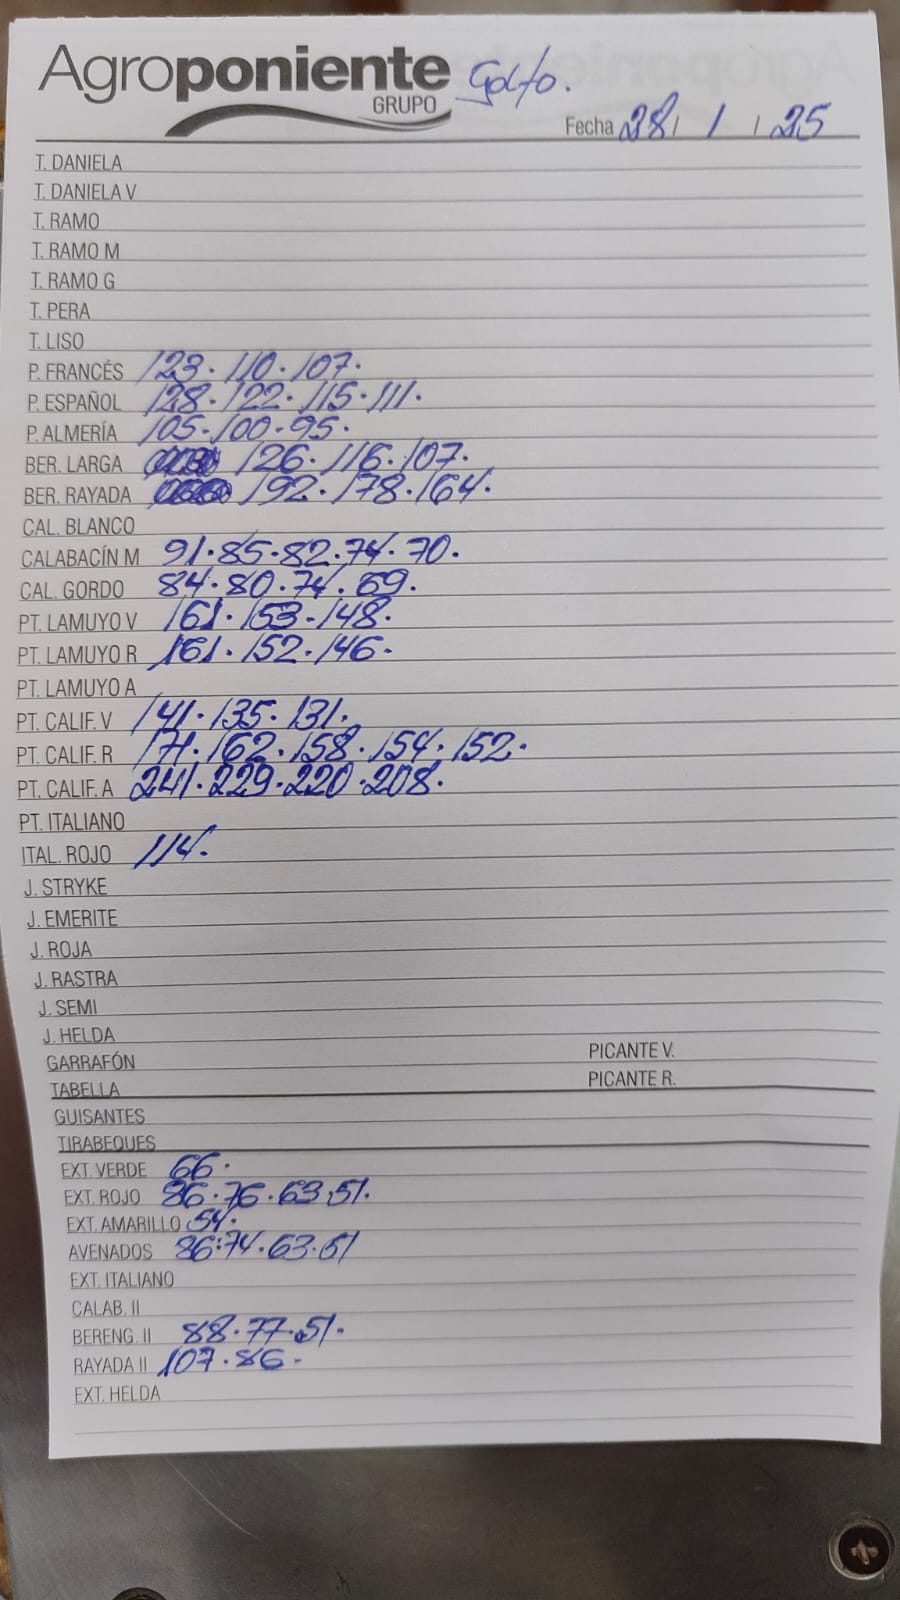 Agroponiente Golfo.
GRUPO
Fecha 28 / 1 / 25
T. DANIELA
T. DANIELA V
T. RAMO
T. RAMO M
T. RAMO G
T. PERA
T. LISO
P. FRANCÉS 123. 110. 107.
P. ESPAÑOL 128. 122. 115. 111.
P. ALMERÍA 105. 100. 95.
BER. LARGA 126. 116. 107.
BER. RAYADA 192. 178. 164.
CAL. BLANCO
CALABACÍN M 91. 85. 82. 74. 70.
CAL. GORDO 84. 80. 74. 69.
PT. LAMUYO V 161. 153. 148.
PT. LAMUYO R 161. 152. 146.
PT. LAMUYO A
PT. CALIF. V 141. 135. 131.
PT. CALIF. R 171. 162. 158. 154. 152.
PT. CALIF. A 241. 229. 220. 208.
PT. ITALIANO
ITAL. ROJO 114.
J. STRYKE
J. EMERITE
J. ROJA
J. RASTRA
J. SEMI
J. HELDA
GARRAFÓN PICANTE V.
TABELLA PICANTE R.
GUISANTES
TIRABEQUES
EXT. VERDE 66.
EXT. ROJO 86. 76. 63. 51.
EXT. AMARILLO 54.
AVENADOS 86. 74. 63. 51
EXT. ITALIANO
CALAB. II
BERENG. II 88. 77. 51.
RAYADA II 107. 86.
EXT. HELDA